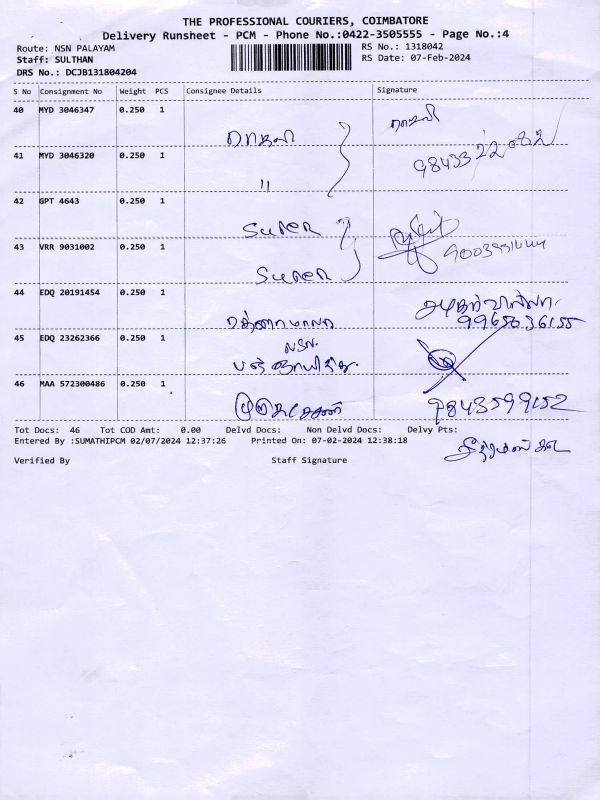 THE PROFESSIONAL COURIERS, COIMBATORE
Delivery Runsheet - PCM - Phone No.:0422-3505555 - Page No.:4
Route: NSN PALAYAM RS No.: 1318042
Staff: SULTHAN RS Date: 07-Feb-2024
DRS No.: DCJB131804204
S No Consignment No Weight PCS Consignee Details Signature
40 MYD 3046347 0.250 1
98433 22082
41 MYD 3046320 0.250 1
"
42 GPT 4643 0.250 1 Super
43 VRR 9031002 0.250 1
Super
44 EDQ 20191454 0.250 1
9965036155
45 EDQ 23262366 0.250 1
46 MAA 572300486 0.250 1 முருகேசன் 9843599152
Tot Docs: 46 Tot COD Amt: 0.00 Delvd Docs: Non Delvd Docs: Delvy Pts:
Entered By :SUMATHIPCM 02/07/2024 12:37:26 Printed On: 07-02-2024 12:38:18
Verified By Staff Signature